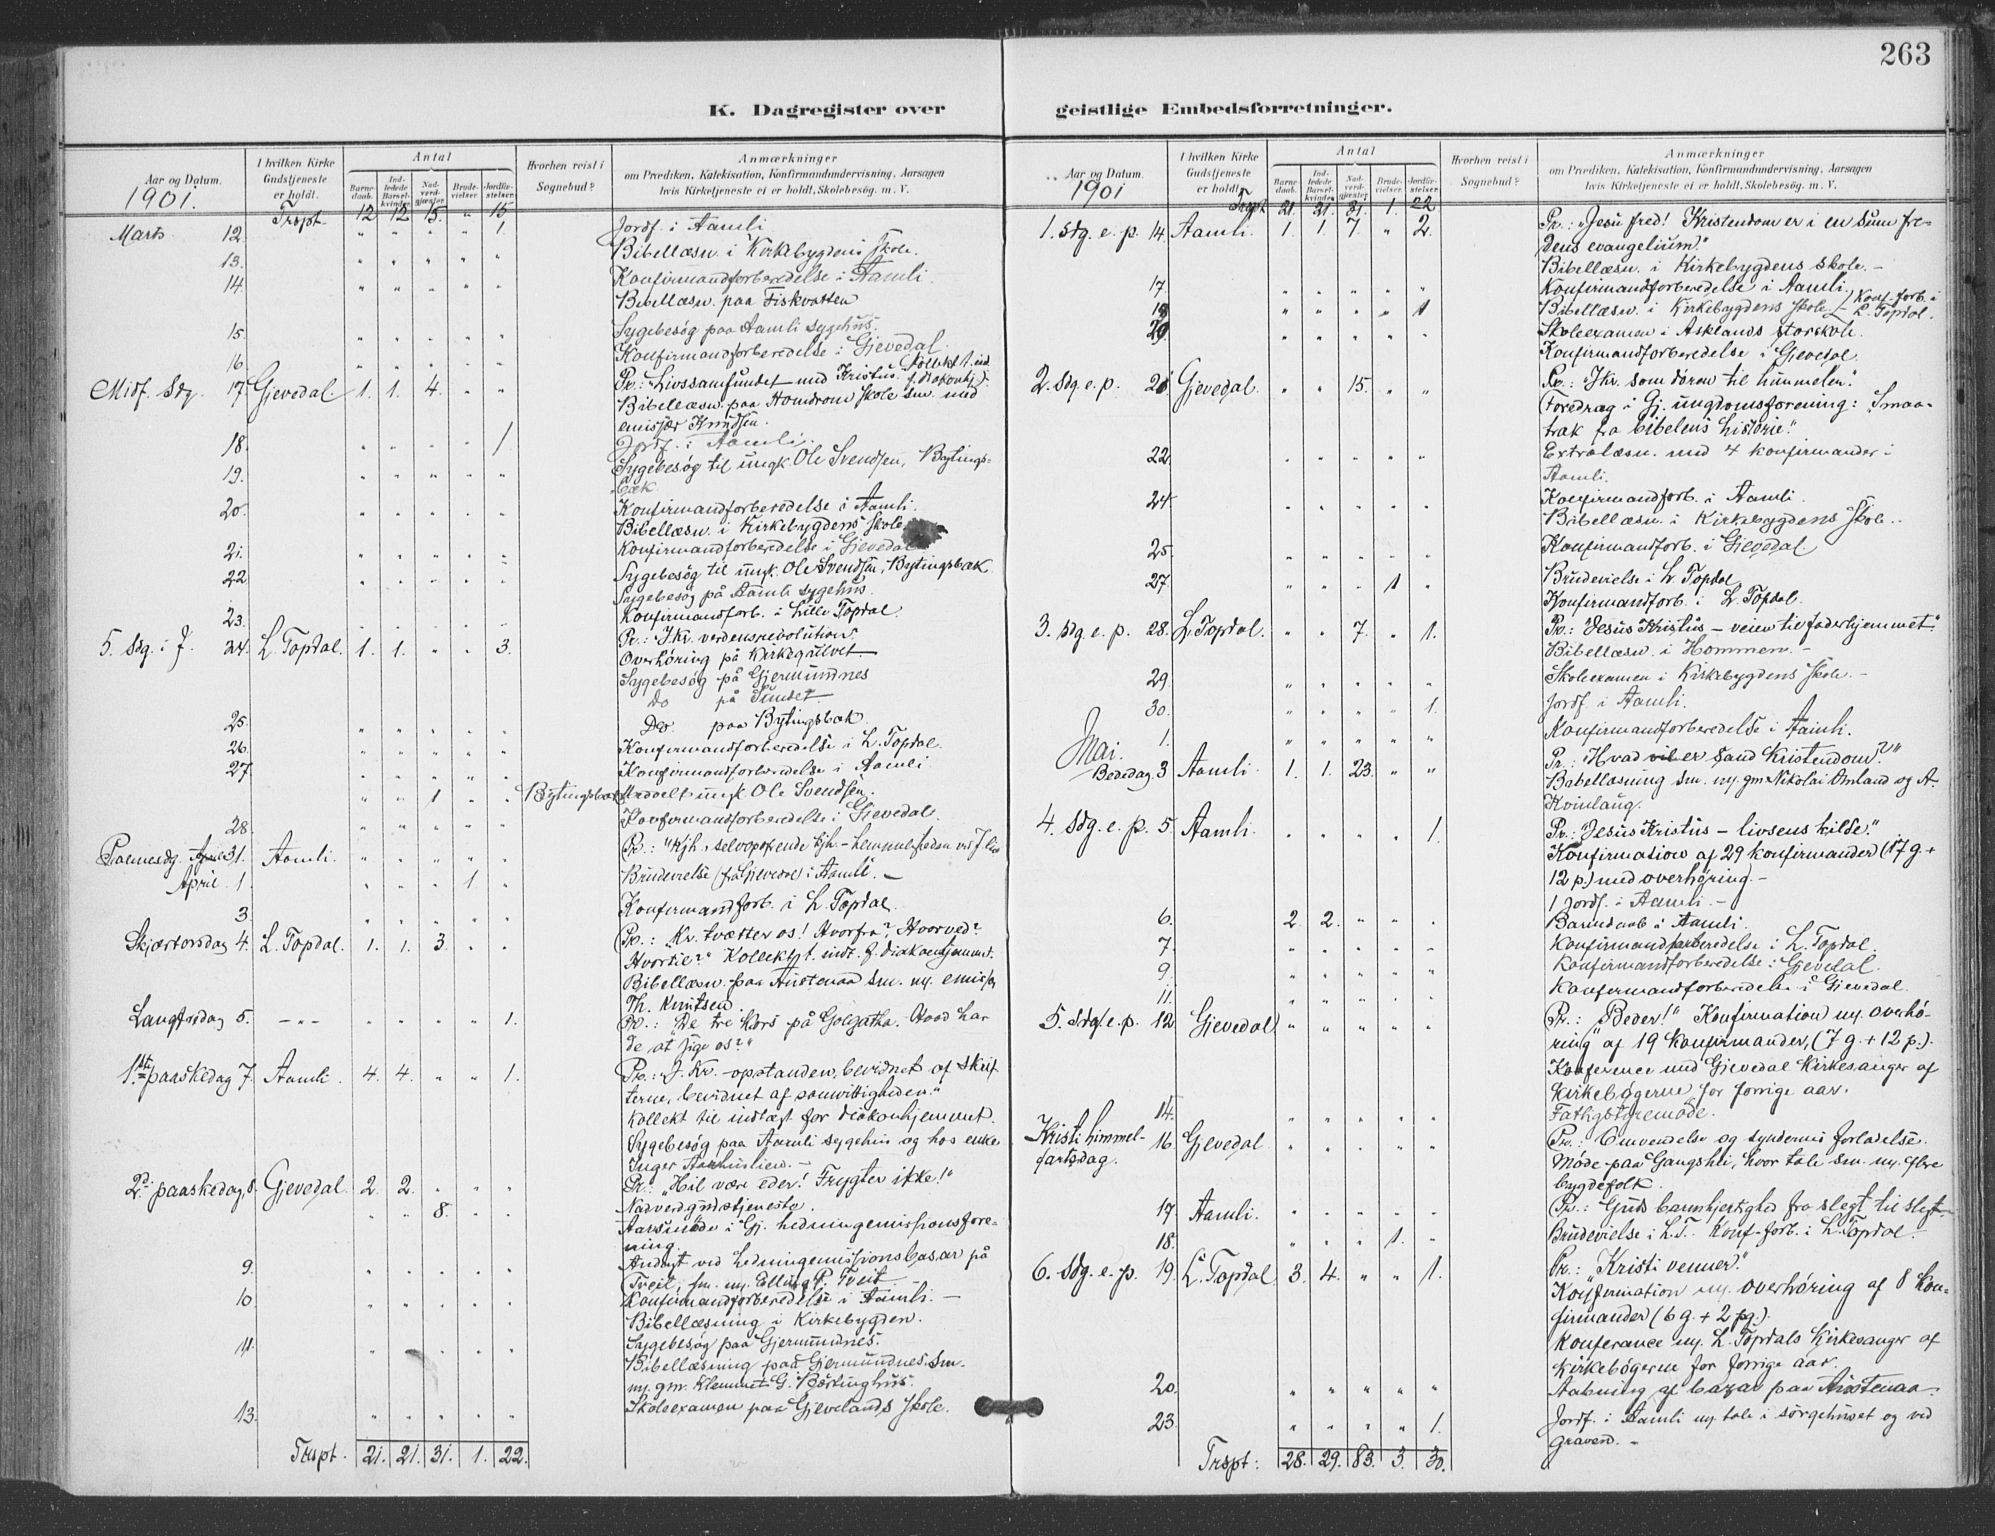 263
K. Dagregister over geistlige Embedsforretninger.
Aar og Datum.
1901.
I hvilken Kirke Gudstjeneste er holdt.
Antal
Barnedaab.
Indledede Barselkvinder.
Nadverdgjæster.
Brudevielser.
Jordfæstelser.
Hvorhen reist i Sognebud?
Anmærkninger
om Prædiken, Katekisation, Konfirmandundervisning, Aarsagen
hvis Kirketjeneste ei er holdt, Skolebesøg. m. V.
Trspt 12 12 15. " 15
Marts 12. " " " " 1. Jordf. i Aamli
Bibellæsn. i Kirkebygdens Skole.
13. " " " " " Konfirmandforberedelse i Aamli.
14. " " " " " Bibellæsn. paa Fiskvatten
Sygebesøg paa Aamli sygehus.
15. " " " " " Konfirmandforberedelse i Gjevedal.
16. " " " " "
Midf. Sdg. 17. Gjevedal. 1. 1. 4. " " Pr.: Livssamfundet med Kristus. (Kollekt t. ind f. diakonhj.)
Bibellæsn. paa Homdrom Skole sm. med
emissær Knudsen.
18. " " " " 1. Jordf. i Aamli.
19. " " " " " Sygebesøg til ungk. Ole Svendsen, Bytings-
bæk.
20. " " " " " Konfirmandforberedelse i Aamli.
Bibellæsn. i Kirkebygdens Skole
21. " " " " " Konfirmandforberedelse i Gjevedal
22 " " " " " Sygebesøg til ungk. Ole Svendsen, Bytingsbæk
Sygebesøg på Aamli sygehus.
23. " " " " " Konfirmandforb. i Lille Topdal.
5. Sdg. i f. 24. L. Topdal. 1. 1. " " 3. Pr.: J. Kr. verdensrevolution.
Overhøring på Kirkegulvet.
Sygebesøg på Gjermundnes
Do på Sundet
25. " " " " " Do paa Bytingsbæk.
26. " " " " " Konfirmandforberedelse i L. Topdal.
27. " " " " " Konfirmandforberedelse i Aamli
" " 1 " " Bytingsbæk ungk Ole Svendsen.
28. Konfirmandforberedelse i Gjevedal.
Palmesdg. 31. Aamli. " " " " " Pr.:
April. 1. " " " 1 " Brudevielse (fra Gjevedal) i Aamli. —
3. " " " " " Konfirmandforb. i L. Topdal.
Skjærtorsdag 4. L. Topdal. 1. 1. 3. " " Pr.: "Kr. tvætter os! Hvorfra? Hvorved?
Hvortil?" Kollekt t. indt. f. diakonhjemmet.
Bibellæsn. paa Austenaa sm. m. emissær
Th. Knutsen.
Langfredag 5. —"— " " " " 1. Pr.: "De tre kors på Golgatha. Hvad har
de at sige os?"
1ste paaskedag 7. Aamli. 4. 4. " " 1. Pr.: J. Kr. opstanden, bevidnet af skrif-
terne, bevidnet af samvittigheden."
Kollekt til indtægt for diakonhjemmet.
Sygebesøg paa Aamli sygehus og hos enke
Inger —
2d. paaskedag, 8. Gjevedal. 2. 2. " " " Pr.: "Hil være eder! Frygter ikke!"
" " 8. " " Nadverdgudstjeneste.
Aarsmøde i Gj. hedningemissionsfore-
ning.
9. " " " " " Andagt ved hedningemissionsbasar på
Tveit, sm. m. Elling P. Tveit
10. " " " " " Konfirmandforberedelse i Aamli. —
Bibellæsning i Kirkebygden.
11. " " " " " Sygebesøg paa Gjermundnes.
Bibellæsning paa Gjermundnes sm.
m. gm. Klemmet G. Børtinghus.
13. " " " " " Skoleexamen paa Gjevelands Skole.
Trspt. 21. 21. 31. 1. 22.
Aar og Datum.
1901
I hvilken Kirke Gudstjeneste er holdt.
Antal
Barnedaab.
Indledede Barselkvinder.
Nadverdgjæster.
Brudevielser.
Jordfæstelser.
Hvorhen reist i Sognebud?
Anmærkninger
om Prædiken, Katekisation, Konfirmandundervisning, Aarsagen
hvis Kirketjeneste ei er holdt. Skolebesøg. m. V.
Trspt 21. 21. 31. 1. 22
1. Sdg. e. p. 14. Aamli. 1. 1. 7. " 2. Pr.: "Jesu fred! Kristendom er i en sum fre-
dens evangelium."
Bibellæsn. i Kirkebygdens skole. —
17. " " " " " Konfirmandforberedelse i Aamli.
Bibellæsn. i Kirkebygdens skole. / Konf.-forb. i L. Topdal.
19 " " " " 1 Skoleexamen i Asklands storskole.
20. Konfirmandforberedelse i Gjevedal.
2. Sdg. e. p. 21 Gjevedal. " " 15. " " Pr.: "J. Kr. som døren til himmelen."
Foredrag i Gj. ungdomsforening: "Smaa-
træk fra bibelens historie."
22. " " " " " Extralæsn. med 4 konfirmander i
Aamli.
24 " " " " " Konfirmandforb. i Aamli.
Bibellæsn. i Kirkebygdens skole.
25. " " " " " Konfirmandforb. i Gjevedal.
27. " " " 1 " Brudevielse i L. Topdal
Konfirmandforb. i L. Topdal.
3. Sdg. e. p. 28. L. Topdal. " " 7. " 1. Pr.: "Jesus Kristus — veien til faderhjemmet."
Bibellæsn. i Hommen. —
29. " " " " " Skoleexamen i Kirkebygdens skole. —
30. " " " " 1. Jordf. i Aamli.
Mai. 1. " " " " " Konfirmandforberedelse i Aamli.
Bededag 3 Aamli. 1. 1. 23. " " Pr.: "Hvad er sand kristendom?"
Bibellæsning sm. m. gm Nikolai Omland og A.
Kvinlaug.
4. Sdg. e. p. 5 Aamli. " " " " 1. Pr.: "Jesus Kristus — livsens kilde."
Konfirmation af 29 konfirmander (17 g. +
12 p.) med overhøring. —
1 Jordf. i Aamli. —
6. 2 2. " " " Barnedaab i Aamli.
7. " " " " " Konfirmandforberedelse i L. Topdal.
9. " " " " " Konfirmandforberedelse i Gjevedal.
11. " " " " " Konfirmandforberedelse i Gjevedal.
5. Sdg. e. p. 12 Gjevedal " " " " " Pr.: "Beder!" Konfirmation m. overhø-
ring af 19 konfirmander, (7 g. + 12 p.).
Konference med Gjevedal Kirkesanger af
kirkebøgerne for forrige aar.
14. " " " " " Fattigstyremøde.
Kristi himmel-
fartsdag. 16. Gjevedal. " " " " " Pr.: Omvendelse og syndernes forladelse.
Møde paa Gangshei, hvor tale sm. m. flere
bygdefolk.
17. Aamli. " " " " " Pr.: Guds barmhjertighed fra slegt til slegt. —
18. " " " 1. " Brudevielse i L. T. Konf-forb. i L. Topdal. —
6. Sdg. e. p. 19. L. Topdal 3. 4. " " 1. Pr.: "Kristi venner."
Konfirmation m. overhøring af 8 kon-
firmander (6 g. + 2 pg.).
Konferance m. L. Topdals Kirkesanger af
Kirkebøgerne for forrige aar.
20. " " " " " Aabning af bazar paa Austenaa.
23. " " " " 1. Jordf. i Aamli m. tale i sørgehuset og ved
graven. —
Trspt. 28. 29. 83. 3. 30.